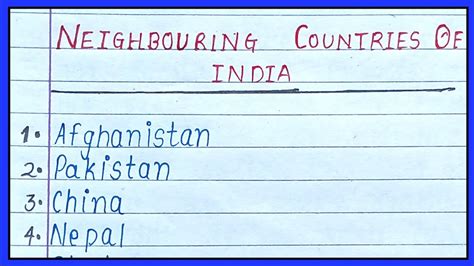 NEIGHBOURING COUNTRIES OF
INDIA
1. Afghanistan
2. Pakistan
3. China
4. Nepal